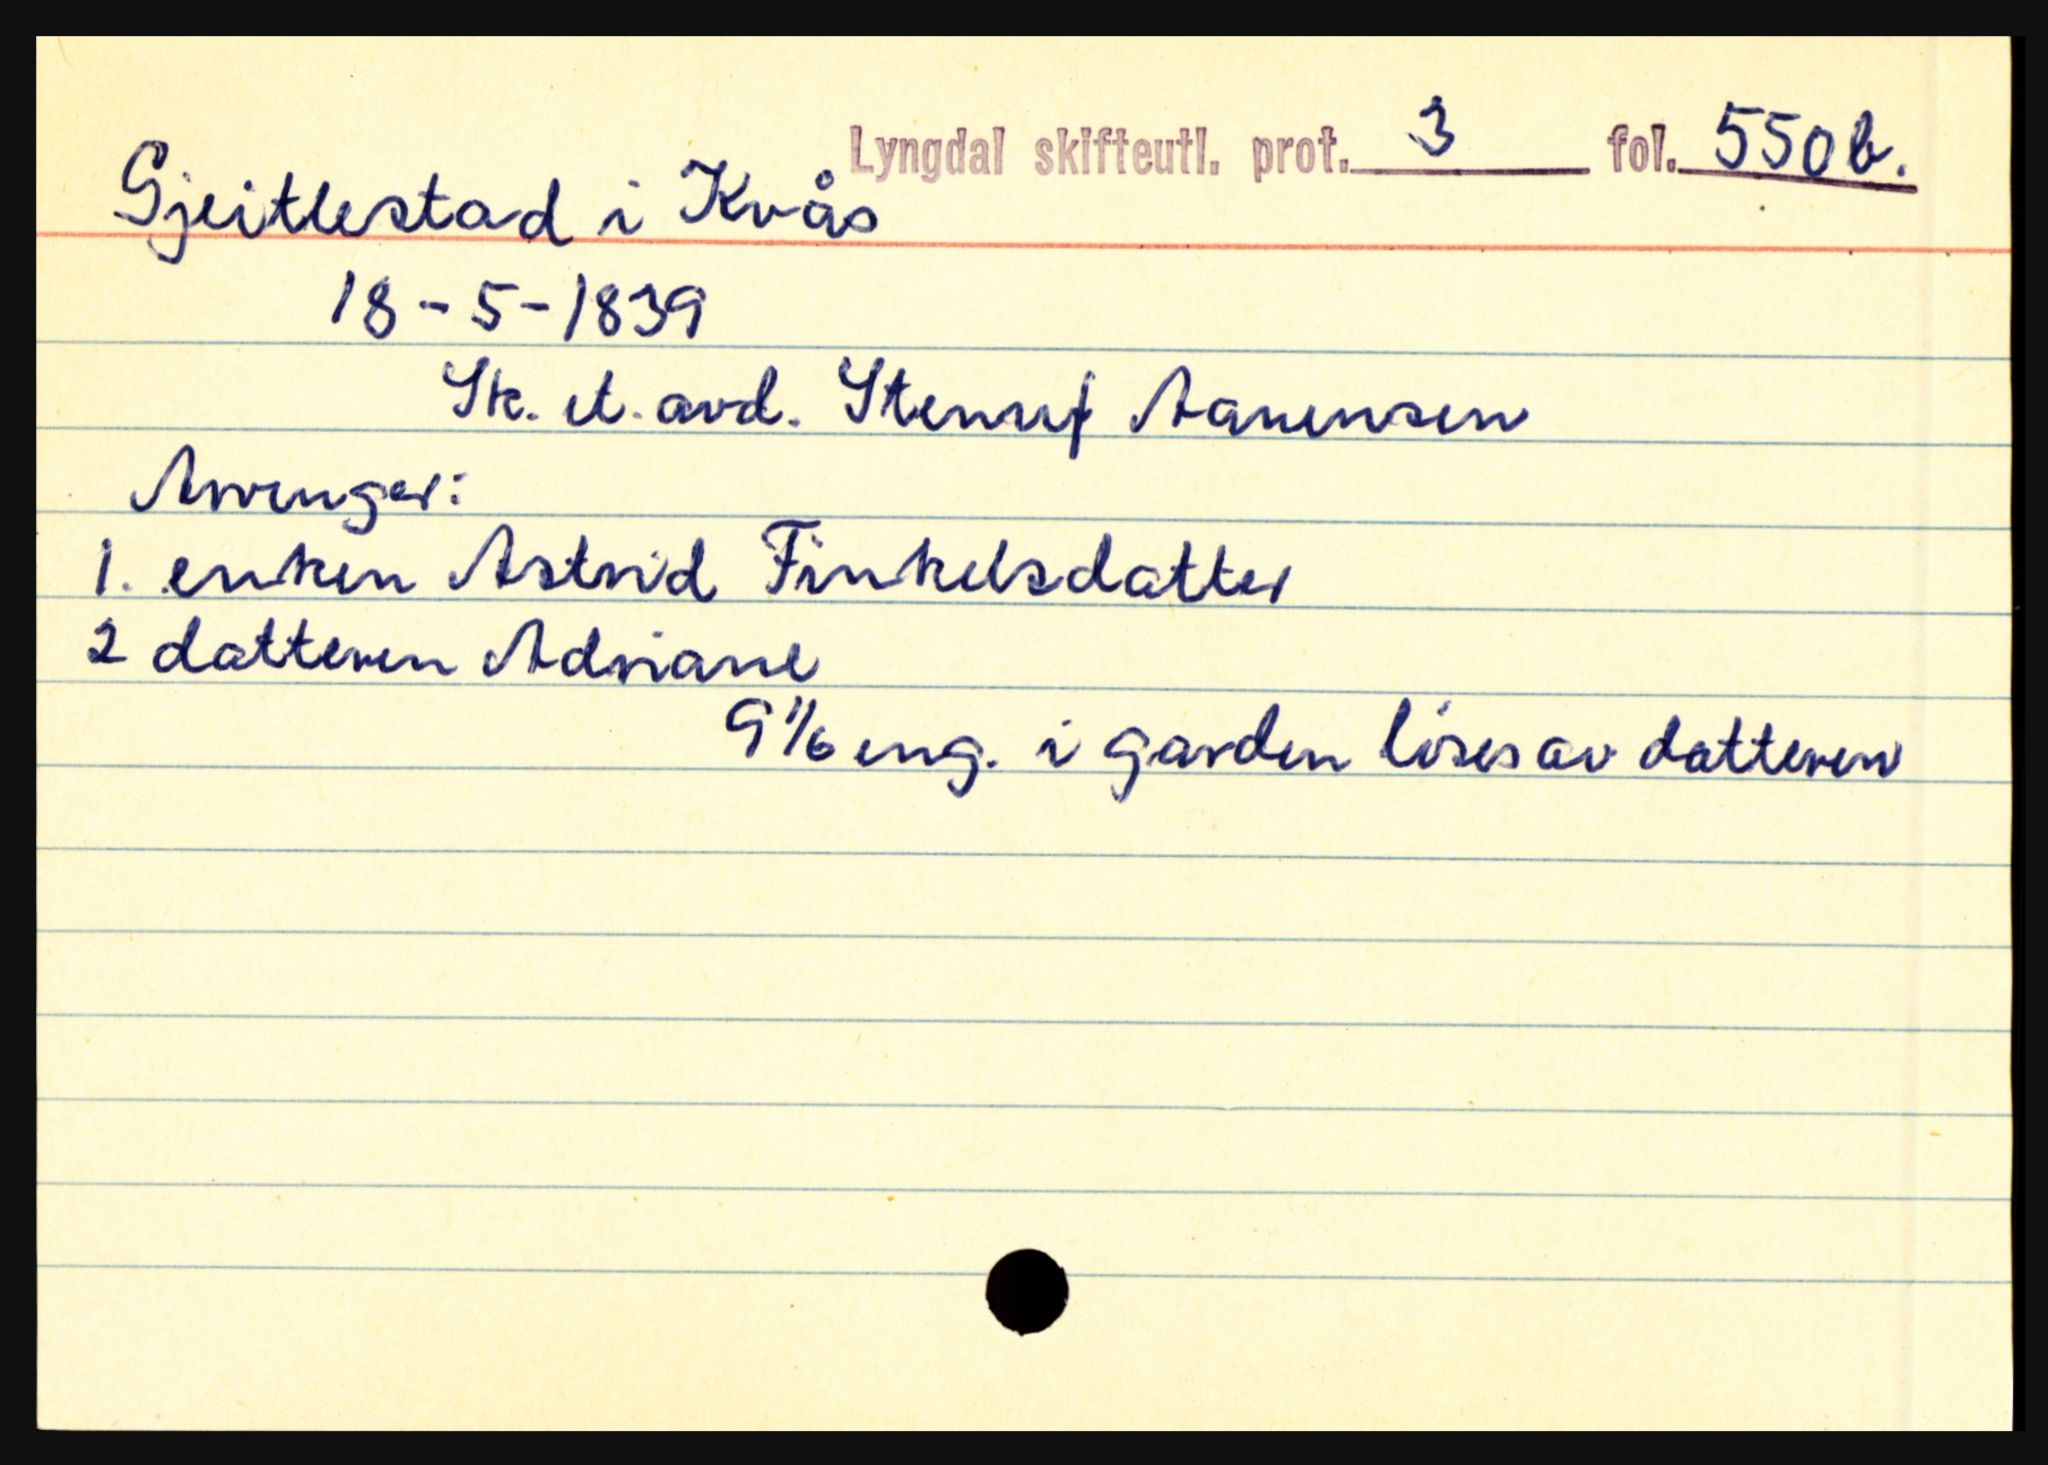 Lyngdal skifteutl. prot. 3 fol. 550b.
Gjeitlestad i Kvås
18-5-1839
Sk. et. avd. Stenuf Aanensen
Arvinger:
1. enken Astrid Finkelsdatter
2 datteren Adriane
9 1/6 eng. i garden løses av datteren